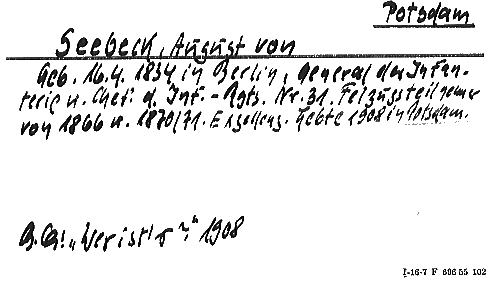 Potsdam
Seebeck, August von
Geb. 16.4. 1834 in Berlin, General der Infan-
terie u. Chef d. Inf.-Rgts. Nr. 31. Felzugsteilnehmer
von 1866 u. 1870/71. Exzellenz. Lebte 1908 in Potsdam.
"Wer ist's?" 1908
I-16-7 F 606 55 102